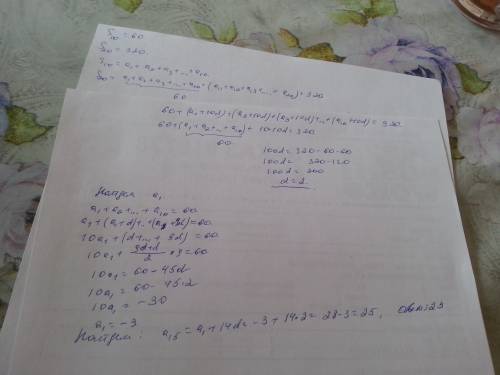 S₁₀ = 60
S₂₀ = 320.
S₁₀ = a₁ + a₂ + a₃ + ... + a₁₀
S₂₀ = a₁ + a₂ + a₃ + ... + a₁₀ + (a₁₁ + a₁₂ + a₁₃ + ... + a₂₀) = 320
60
60 + (a₁ + 10d) + (a₂ + 10d) + (a₃ + 10d) + ... + (a₁₀ + 10d) = 320
60 + (a₁ + a₂ + ... + a₁₀) + 10·10d = 320
60
100d = 320 - 60 - 60
100d = 320 - 120
100d = 200
d = 2
Найдем a₁
a₁ + a₂ + ... + a₁₀ = 60
a₁ + (a₁ + d) + ... + (a₁ + 9d) = 60
10a₁ + (d + ... + 9d) = 60
10a₁ + (9d + d)/2 · 9 = 60
10a₁ = 60 - 45d
10a₁ = 60 - 45·2
10a₁ = -30
a₁ = -3
Найдем: a₁₅ = a₁ + 14d = -3 + 14·2 = 28 - 3 = 25, Ответ: 25